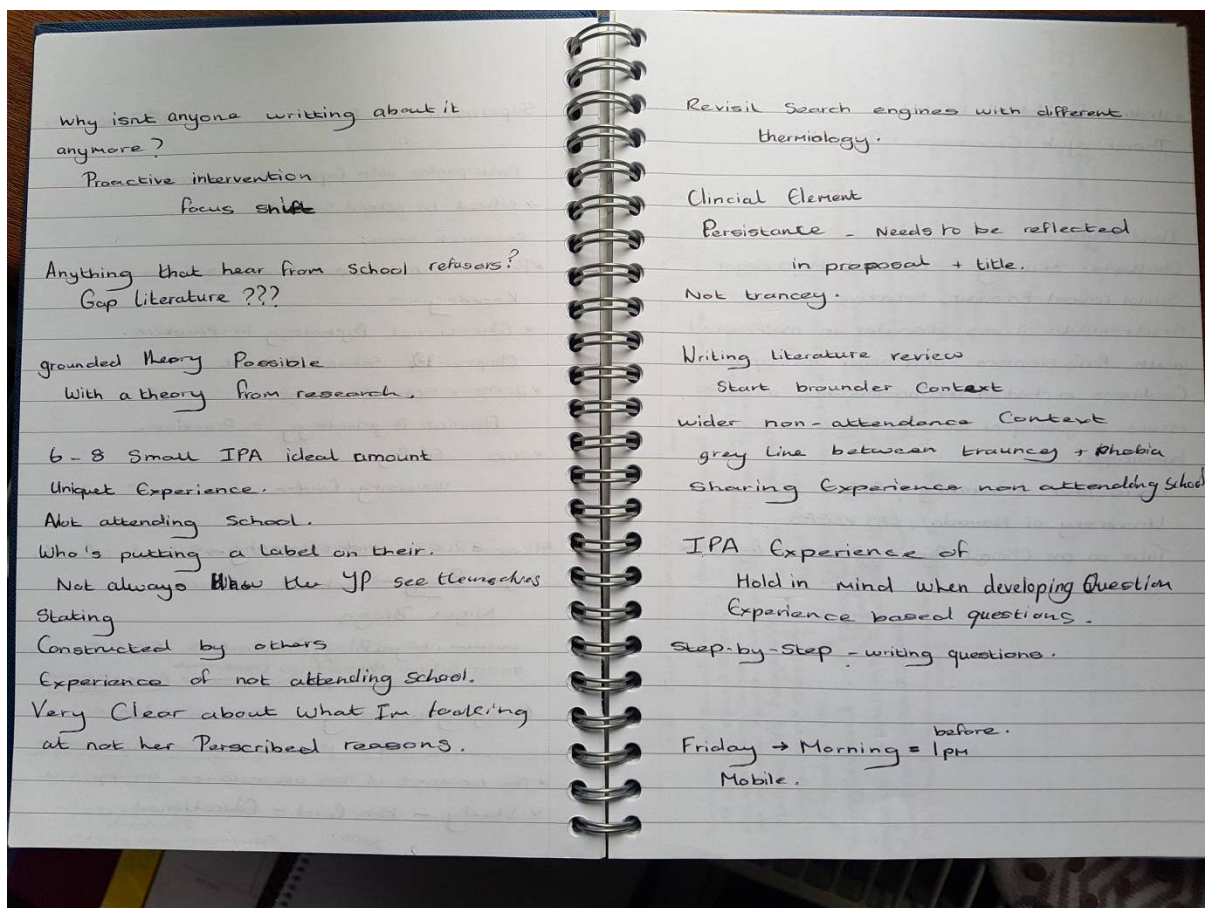 Why isnt anyone writting about it
anymore?
Proactive intervention
focus shift
Anything that hear from school refusers?
Gap literature ???
grounded theory Possible
With a theory from research.
6-8 Small IPA ideal amount
Uniquet Experience.
Not attending School.
Who's putting a Label on their.
Not always how the YP see themselves
Stating
Constructed by others
Experience of not attending School.
Very Clear about what Im looking
at not her Perscribed reasons.
Revisit Search engines with different
thermiology.
Clincial Element
Persistance - Needs to be reflected
in proposal + title.
Not trancey.
Writing literature review
Start brounder Context
wider non-attendance Context
grey line between trauncey + Phobia
Sharing Experience non attending School
IPA Experience of
Hold in mind when developing Question
Experience based questions.
Step-by-Step - writing questions.
before.
Friday → Morning = 1pm
Mobile.